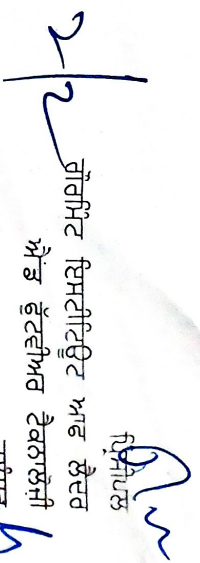 ਪ੍ਰਿੰਸੀਪਲ
ਗੌਰਮਿੰਟ ਇੰਸਟੀਟਿਊਟ ਆਫ ਲੈਦਰ
ਐਂਡ ਫੁੱਟਵੀਅਰ ਟੈਕਨਾਲੌਜੀ